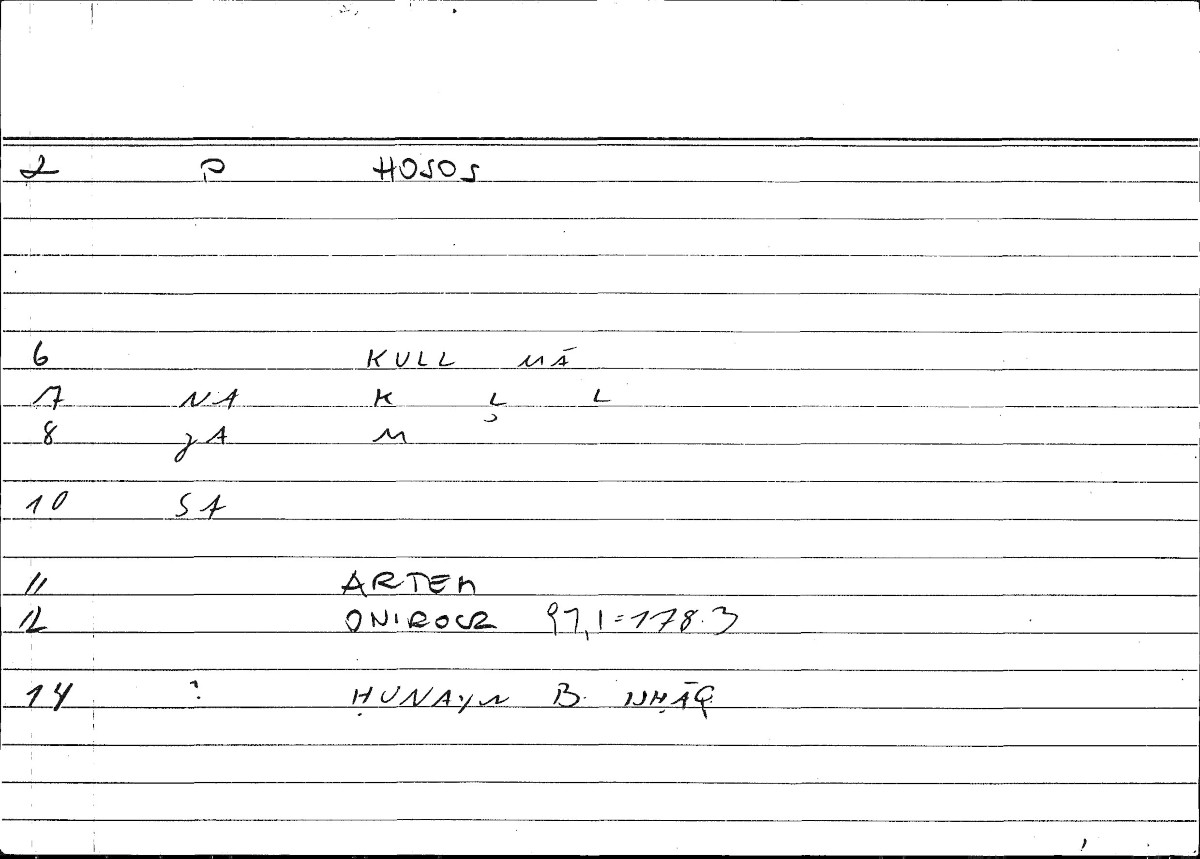 2 P HOSOS
6 KULL MĀ
7 NA K Ḷ L
8 JA M
10 SA
11 ARTEM
12 ONIROCR 97,1=178.3
14 ? ḤUNAYN B. ISḤĀQ